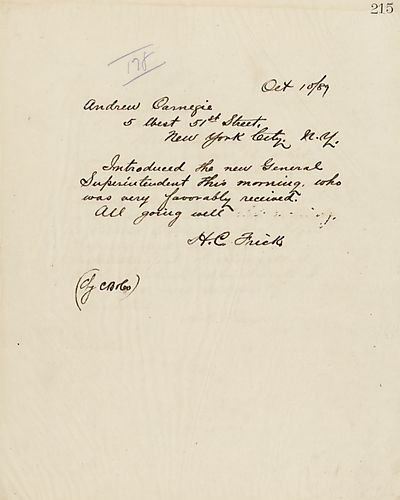 215
178
Oct 10/89
Andrew Carnegie
5 West 51st Street,
New York City, N.Y.
Introduced the new General
Superintendent this morning, who
was very favorably received.
All going well
H. C. Frick